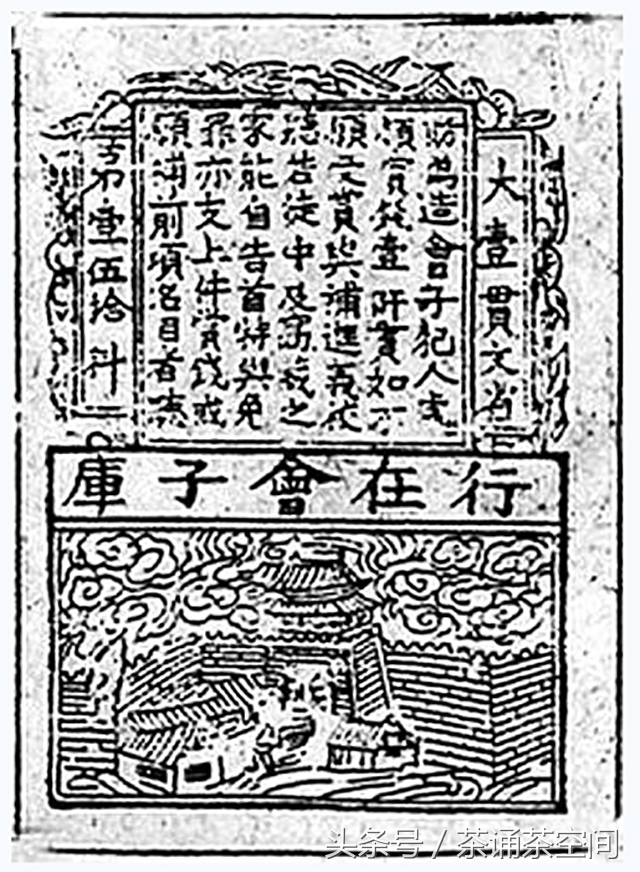 大壹貫文省
造會子犯人
賞錢壹阡貫如不
願支賞與補進義校
若徒中及窩藏之
家能自告首特與免
罪亦支上件賞錢或
願補前項名目者
第壹伍拾料
行在會子庫
头条号 / 茶诵茶空间